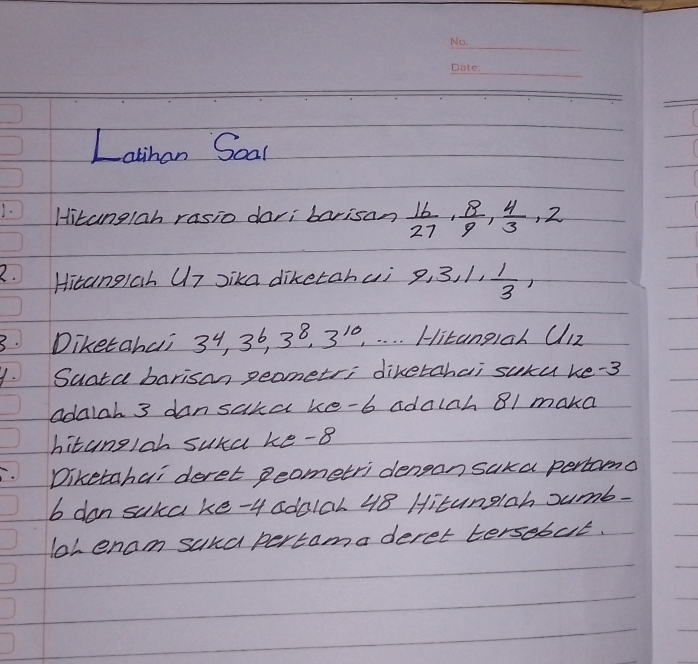 No.
Date:
Latihan Soal
1. Hitunglah rasio dari barisan 16/27, 8/9, 4/3, 2
2. Hitunglah U7 jika diketahui 9, 3, 1, 1/3,
3. Diketahui 3⁴, 3⁶, 3⁸, 3¹⁰, .... Hitunglah U12
4. Suatu barisan geometri diketahui suku ke-3
adalah 3 dan suku ke-6 adalah 81 maka
hitunglah suku ke-8
5. Diketahui deret geometri dengan suku pertama
6 dan suku ke-4 adalah 48 Hitunglah jumb-
lah enam suku pertama deret tersebut.